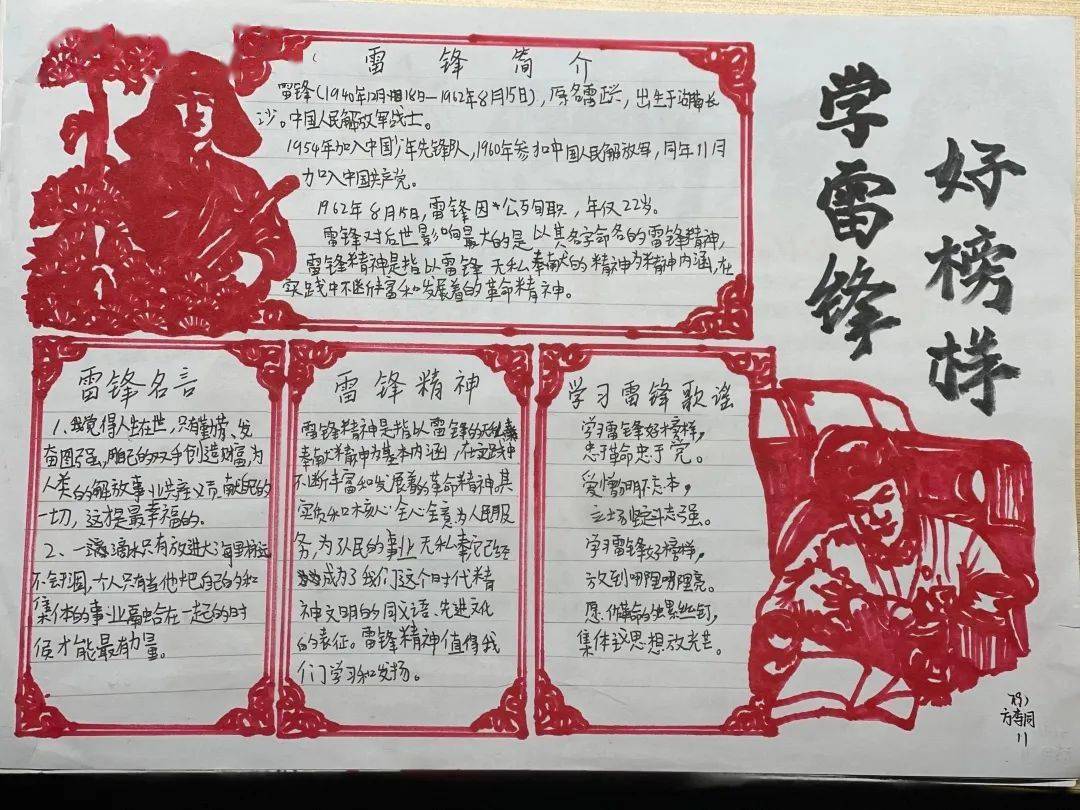 雷锋简介
雷锋(1940年12月18日—1962年8月15日),原名雷正兴,出生于湖南长
沙。中国人民解放军战士。
1954年加入中国少年先锋队,1960年参加中国人民解放军,同年11月
加入中国共产党。
1962年8月15日,雷锋因公殉职,年仅22岁。
雷锋对后世影响最大的是以其名字命名的雷锋精神,
雷锋精神是指以雷锋无私奉献的精神为精神内涵,在
实践中不断丰富和发展着的革命精神。
学雷锋
好榜样
雷锋名言
1、我觉得人生在世,只有勤劳、发
奋图强,用自己的双手创造财富,为
人类的解放事业共产主义贡献自己的
一切,这才是最幸福的。
2、一滴水只有放进大海里
不会干涸,一个人只有当他把自己的和
集体的事业融合在一起的时
候才能最有力量。
雷锋精神
雷锋精神是指以雷锋的无私
奉献精神为基本内涵,在实践中
不断丰富和发展着的革命精神,其
实质和核心全心全意为人民服
务,为了人民的事业无私奉献已经
成为了我们这个时代精
神文明的同义语、先进文化
的表征。雷锋精神值得我
们学习和发扬。
学习雷锋歌谣
学习雷锋好榜样,
忠于革命忠于党。
爱憎分明不忘本,
立场坚定斗志强。
学习雷锋好榜样,
放到哪里哪里亮。
愿做革命的螺丝钉,
集体主义思想放光芒。
11